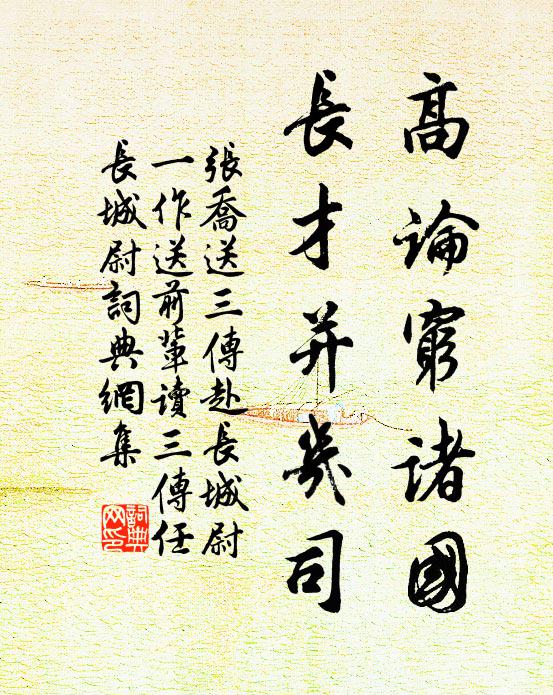 高論窮諸國
長才并幾司
張喬送三傳赴長城尉
一作送前輩讀三傳任
長城尉詞典網集
詞典
网印